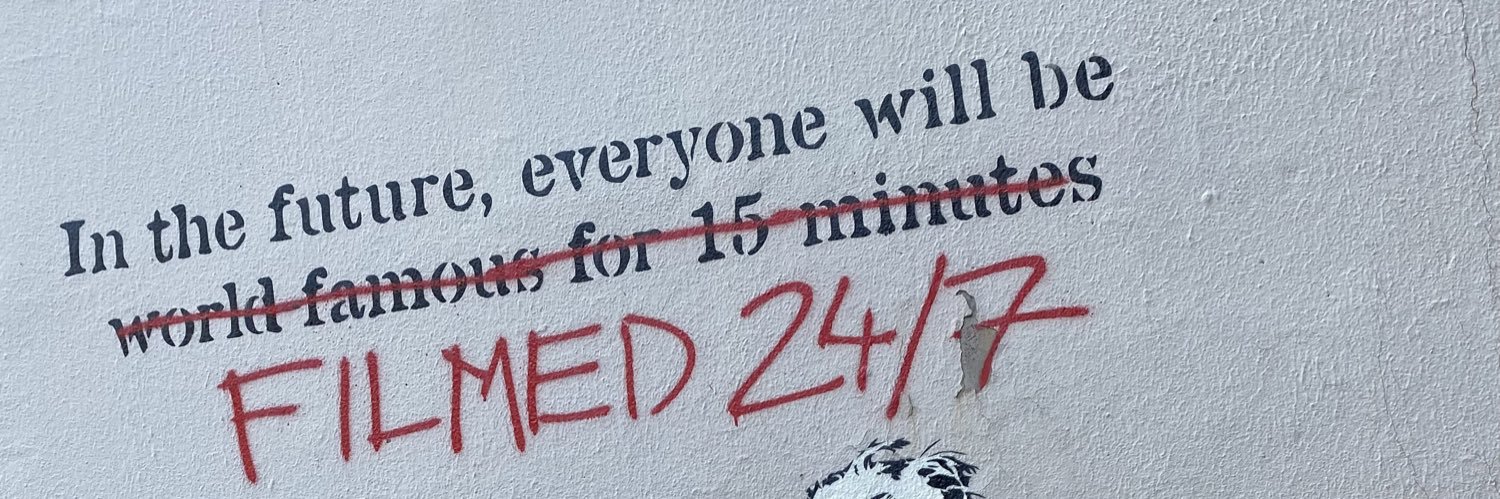 In the future, everyone will be
world famous for 15 minutes
FILMED 24/7